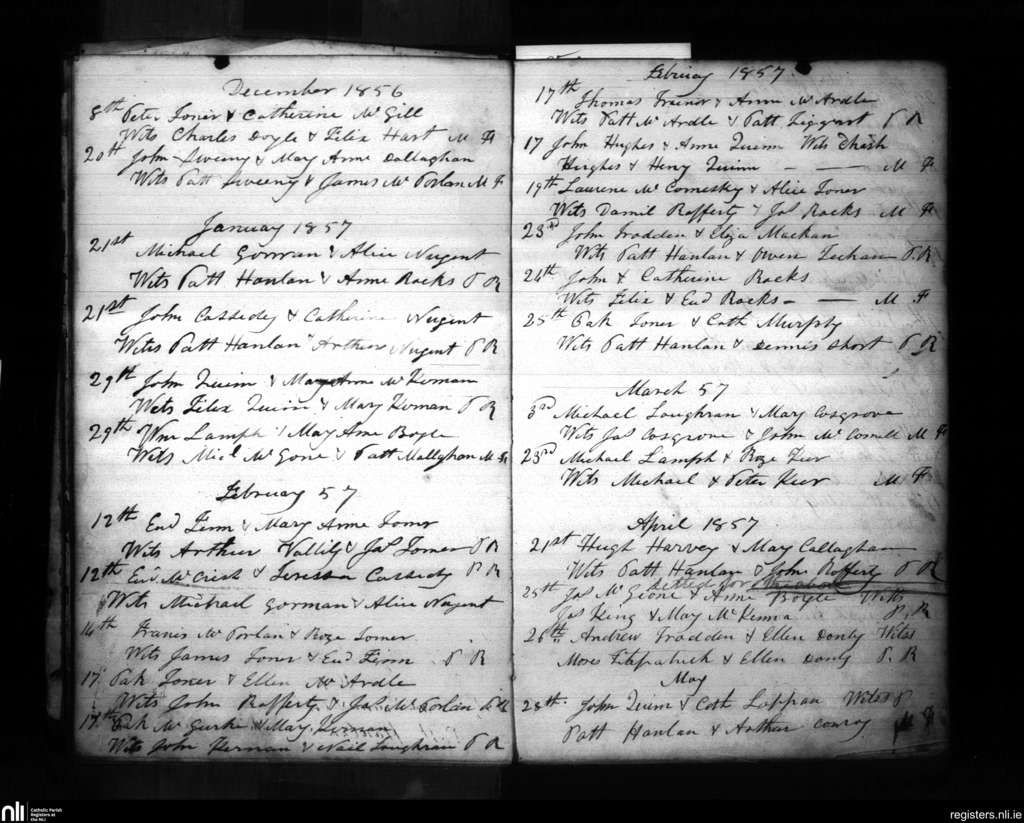 December 1856
8th Peter Toner & Catherine McGill
Wits Charles Doyle & Felix Hart M F
20th John Sweeny & Mary Anne Callaghan
Wits Patt Sweeny & James McParlan M F
January 1857
21st Michael Gorman & Alice Nugent
Wits Patt Hanlan & Anne Rocks P R
21st John Cassidy & Catherine Nugent
Wits Patt Hanlan Arthur Nugent P R
29th John Quinn & Mary Anne McKernan
Wits Felix Quinn & Mary Kernan P R
29th Wm Lamph & Mary Anne Boyle
Wits Micl McGone & Patt Mallaghan M F
February 57
12th Eud Finn & Mary Anne Toner
Wits Arthur Vallily & Jas Toner P R
12th Eud McCrish & Teressa Cassidy P R
Wits Michael Gorman & Alice Nugent
14th Franis McParlan & Roze Toner
Wits James Toner & Eud Finn P R
17 Pak Toner & Ellen McArdle
Wits John Rafferty & Jas McParlan
17th Pak McGurke & Mary Kernan
Wits John Kernan & Neil Loughran P R
February 1857
17th Thomas Treinor & Anne McArdle
Wits Patt McArdle & Patt Tiggart P R
17 John Hughes & Anne Quinn Wits
Hughes & Henry Quinn - - M F
19th Laurence McComesky & Alice Toner
Wits Daniel Rafferty & Jas Rocks M F
23rd John Fradden & Eliza Mackan
Wits Patt Hanlan & Owen P.R
24th John & Catherine Rocks
Wits Felix & Eud Rocks - - M F
25th Pak Toner & Cath Murphy
Wits Patt Hanlan & Dennis Short P R
March 57
3rd Michael Loughran & Mary Cosgrove
Wits Jas Cosgrove & John McConnell M F
23rd Michael Lamph & Roze Keer
Wits Michael & Peter Keer M F
April 1857
21st Hugh Harvey & Mary Callaghan
Wits Patt Hanlan & John Rafferty P R
25th Jas McGeone & Anne Boyle Wits
Jas King & Mary McKenna P.R
26th Andrew Fradden & Ellen Donly Wits
Moses Fitzpatrick & Ellen Donly P.R
May
28th John Quinn & Cath Loppan Wits
Patt Hanlan & Arthur Conroy
nli
Catholic Parish
Registers at
the NLI
registers.nli.ie